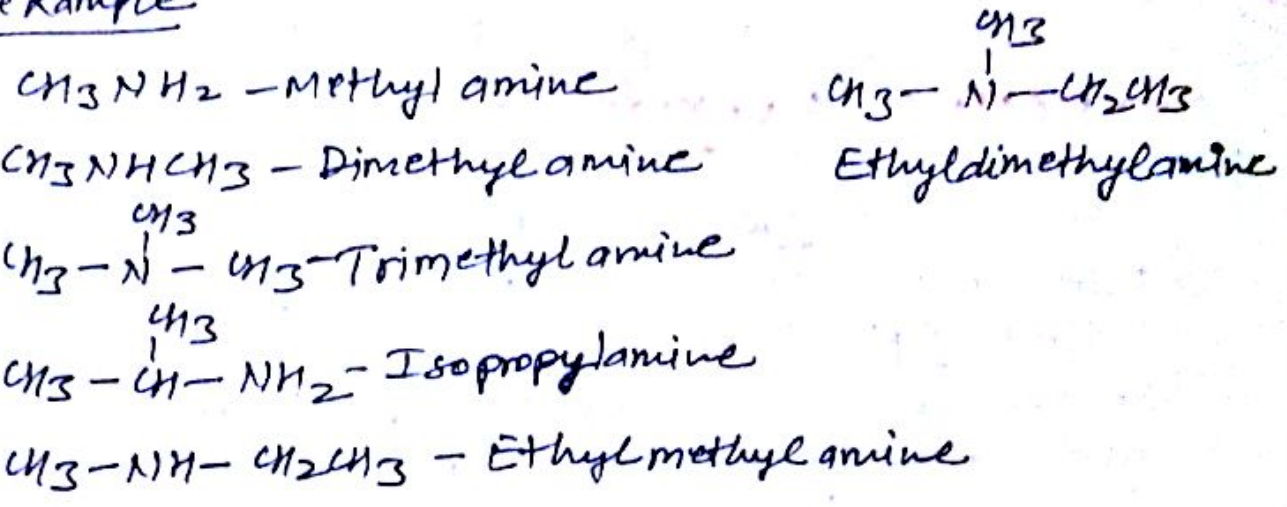 Example
CH3NH2 - Methyl amine
CH3NHCH3 - Dimethylamine
CH3
CH3 - N - CH3 - Trimethylamine
CH3
CH3 - CH - NH2 - Isopropylamine
CH3 - NH - CH2CH3 - Ethylmethylamine
CH3
CH3 - N - CH2CH3
Ethyldimethylamine